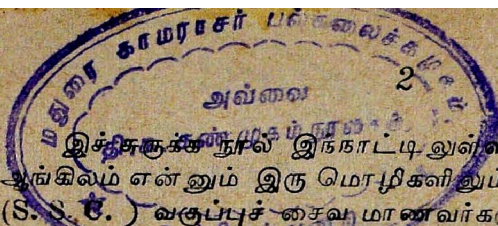 மதுரை காமராசர் பல்கலைக்கழகம்
2
அவ்வை
இச்சுருக்க நூல் இந்நாட்டிலுள்ள
ஆங்கிலம் என்னும் இரு மொழிகளிலும்
(S. S. C. ) வகுப்புச் சைவ மாணவர்க